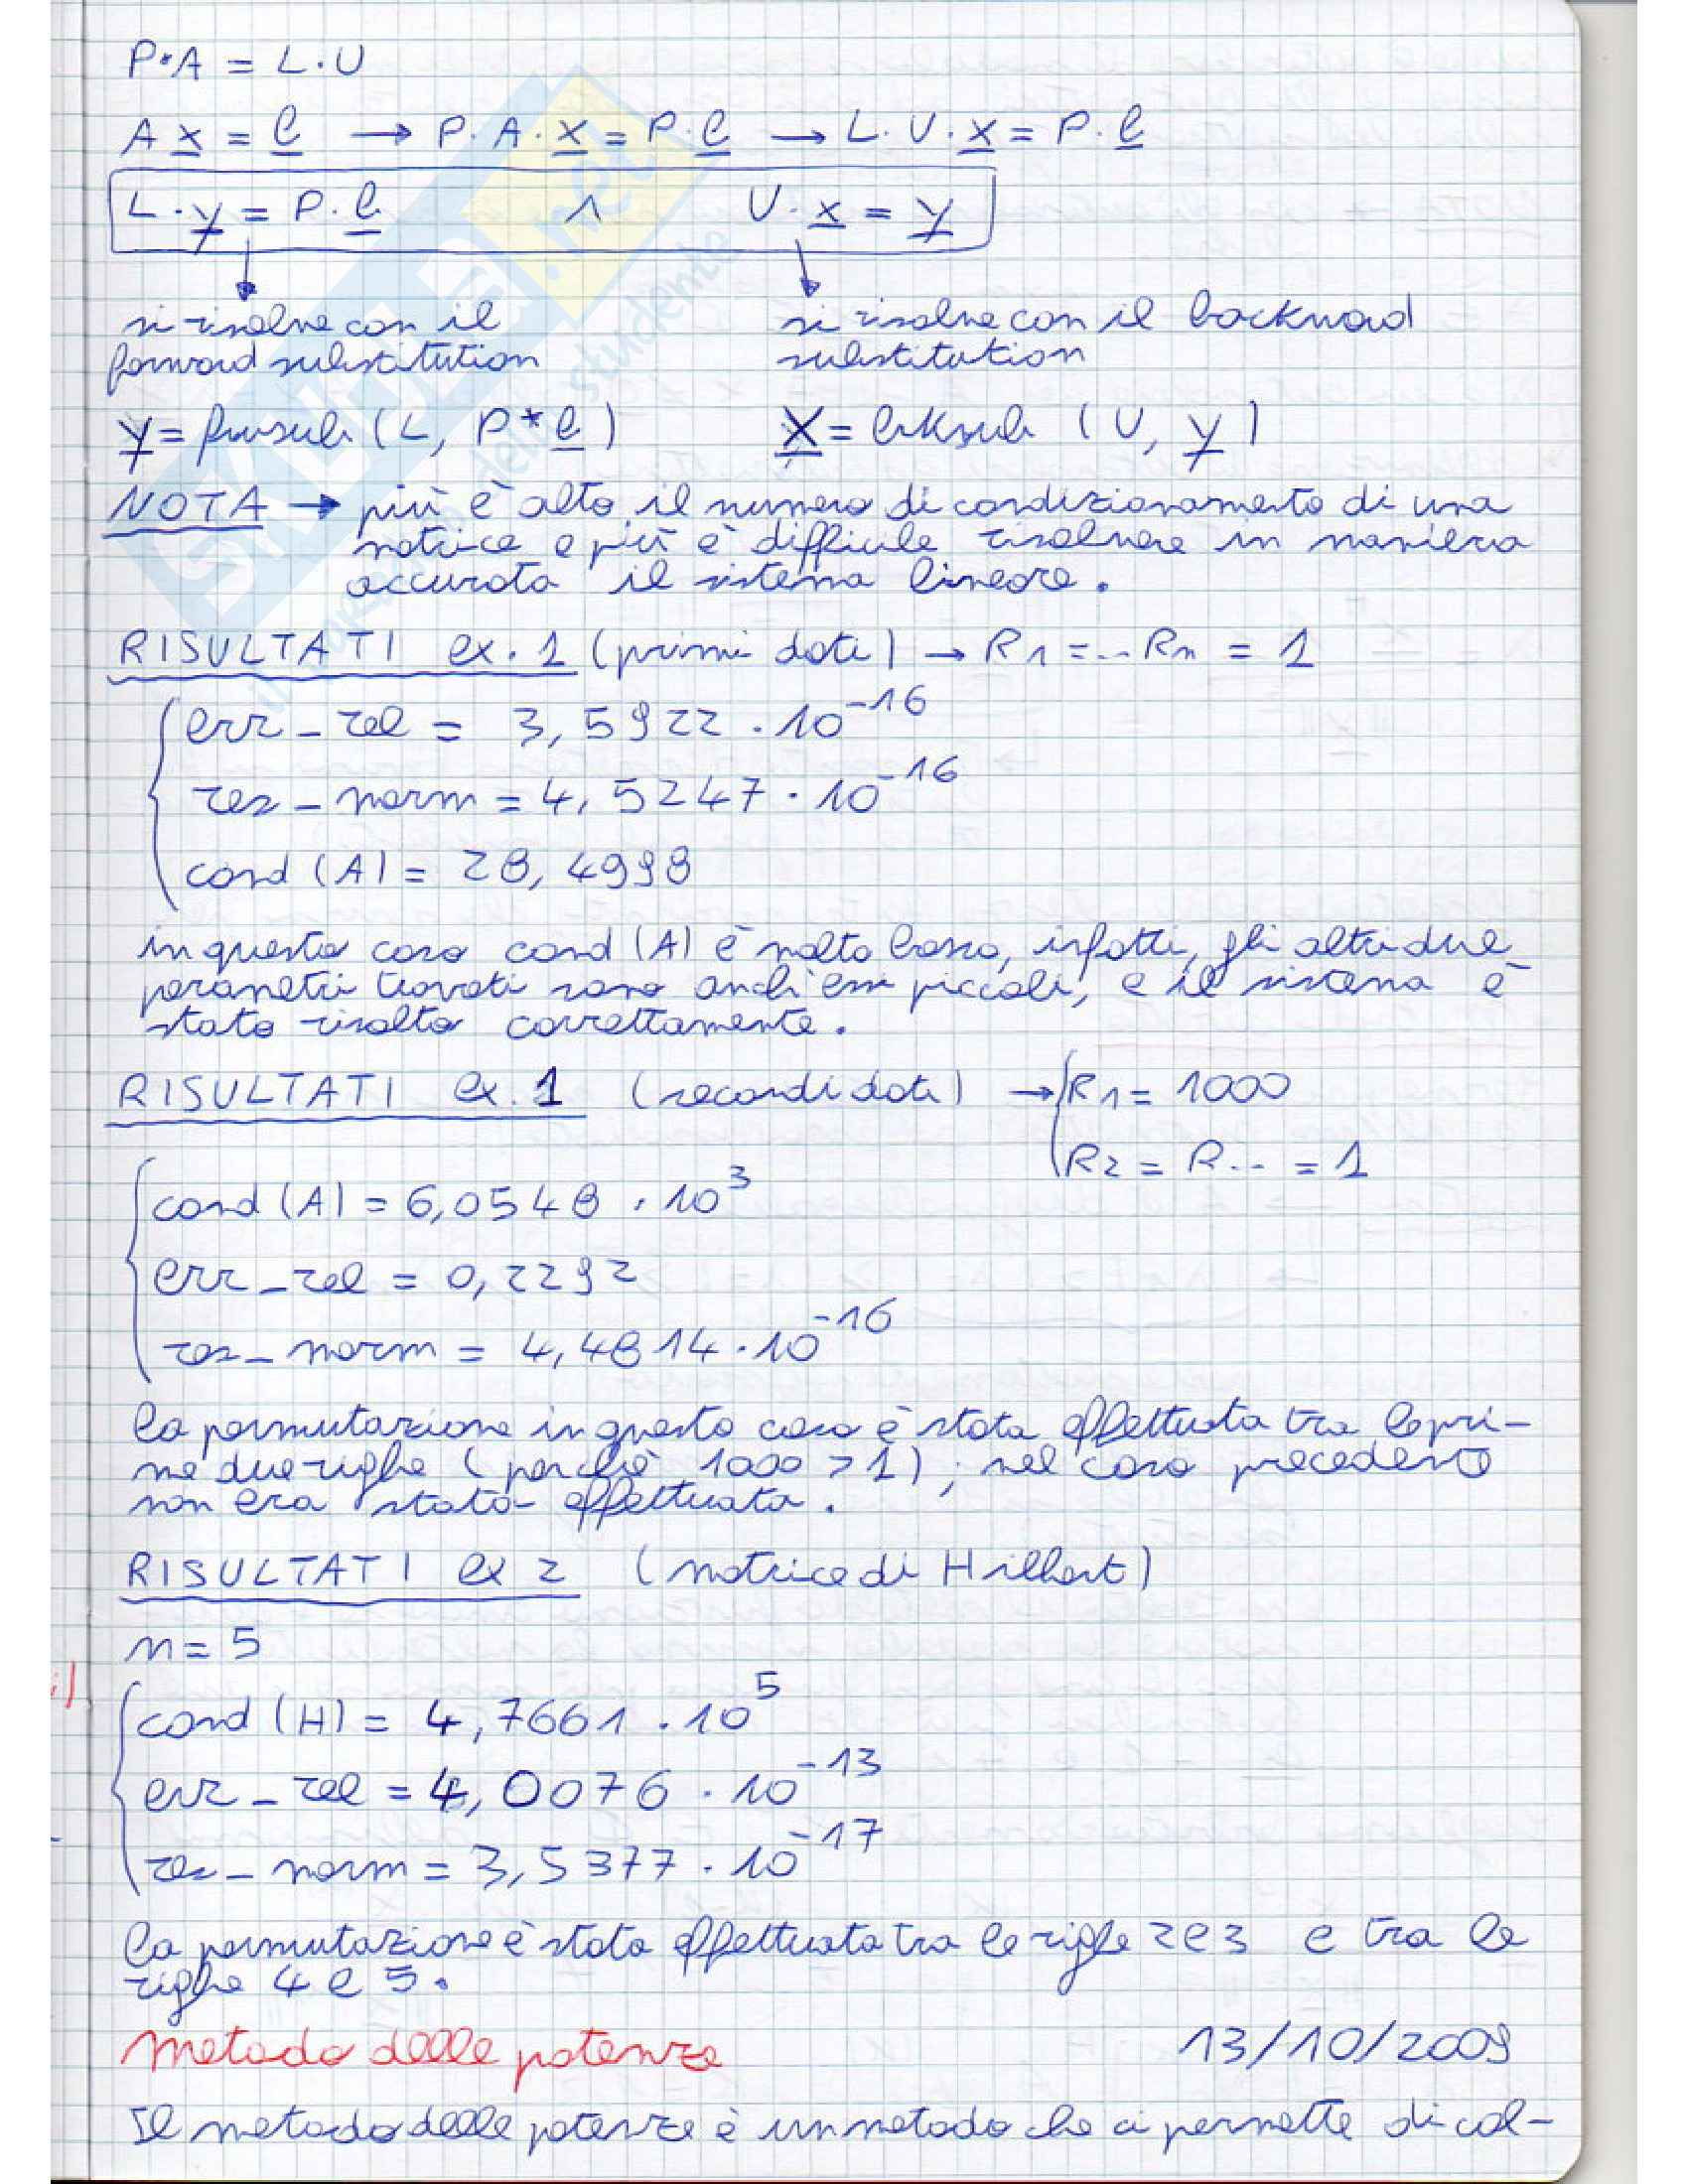 P*A = L·U
A x = b → P·A·x = P·b → L·U·x = P·b
L·y = P·b ∧ U·x = y
si risolve con il si risolve con il backward
forward substitution substitution
y = fwsub (L, P*b) x = bksub (U, y)
NOTA → più è alto il numero di condizionamento di una
matrice e più è difficile risolvere in maniera
accurata il sistema lineare.
RISULTATI ex. 1 (primi dati) → R1 = ... Rn = 1
err_rel = 3,5922 · 10^-16
res_norm = 4,5247 · 10^-16
cond (A) = 28,4998
in questo caso cond (A) è molto basso, infatti, gli altri due
parametri trovati sono anch'essi piccoli, e il sistema è
stato risolto correttamente.
RISULTATI ex. 1 (secondi dati) → R1 = 1000
R2 = R... = 1
cond (A) = 6,0548 · 10^3
err_rel = 0,2292
res_norm = 4,4814 · 10^-16
la permutazione in questo caso è stata effettuata tra le pri-
me due righe (perchè 1000 > 1); nel caso precedente
non era stata effettuata.
RISULTATI ex 2 (matrice di Hilbert)
n = 5
cond (H) = 4,7661 · 10^5
err_rel = 4,0076 · 10^-13
res_norm = 3,5377 · 10^-17
la permutazione è stata effettuata tra le righe 2 e 3 e tra le
righe 4 e 5.
Metodo delle potenze 13/10/2009
Il metodo delle potenze è un metodo che ci permette di cal-